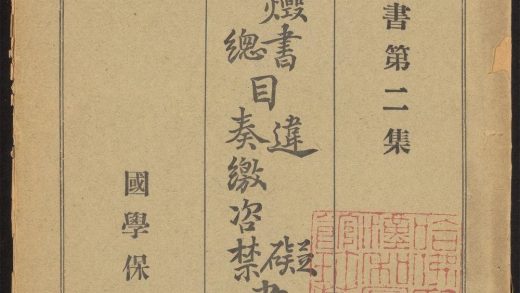 書第二集
燬書
總
目
違礙
奏繳咨禁
國學保
哈佛
漢和